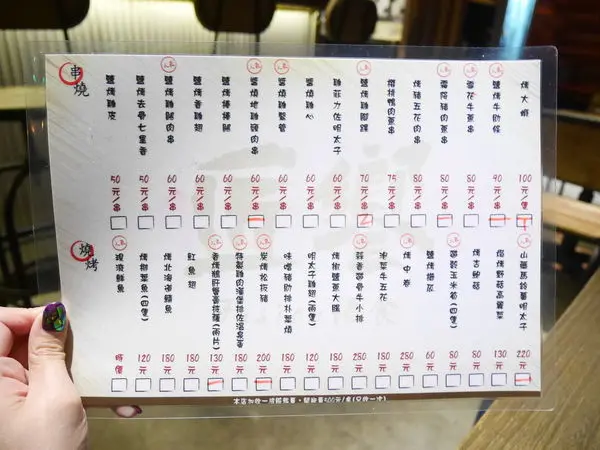 串燒
鹽烤雞皮 50元/串
鹽烤去骨七里香 50元/串
人氣 鹽烤雞腿肉串 60元/串
鹽烤香雞翅 60元/串
鹽烤棒棒腿 60元/串
人氣 醬燒地雞頸肉串 60元/串
人氣 醬燒雞 60元/串
醬燒雞心 60元/串
雞菲力佐明太子 60元/串
人氣 鹽烤雞 70元/串
櫻桃鴨肉蔥串 75元/串
烤豬五花肉串 80元/串
人氣 霜降豬肉蔥串 80元/串
人氣 雪花牛蔥串 80元/串
人氣 鹽烤牛肋條 90元/串
烤大蝦 100元/隻
燒烤
人氣 現流鮮魚 時價
烤柳葉魚(四隻) 120元
烤北海道鯖魚 180元
魟魚翅 180元
人氣 香烤鵝肝醬薯披薩(兩片) 130元
人氣 特製雞肉漢堡排佐溫泉蛋 180元
人氣 炭烤松阪豬 200元
味噌豬肋排朴葉燒 180元
明太子雞翅(兩隻) 130元
烤椒鹽大腸 180元
人氣 蒜香帶骨牛小排 280元
泡菜牛五花 180元
人氣 烤中卷 280元
鹽烤櫛瓜 60元
人氣 玉米筍(四隻) 80元
烤杏鮑菇 80元
焗烤野菇高麗菜 130元
人氣 山藥馬鈴薯明太子 220元
本店加收一成服務費,開瓶費500元/桌(只收一次)